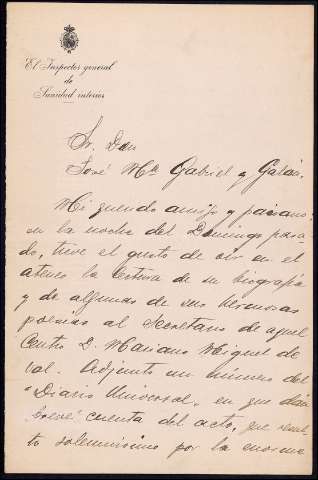 El Inspector general
de
Sanidad interior
Sr. Don
José Mª Gabriel y Galán.
Mi querido amigo y paisano:
en la noche del Domingo pasa-
do, tuve el gusto de oir en el
ateneo la lectura de su biografía
y de algunas de sus hermosas
poesías al Secretario de aquel
Centro D. Mariano Miguel de
Val. Adjunto un número del
"Diario Universal, en que dan
cuenta del acto, que resul-
tó solemnísimo por la enorme